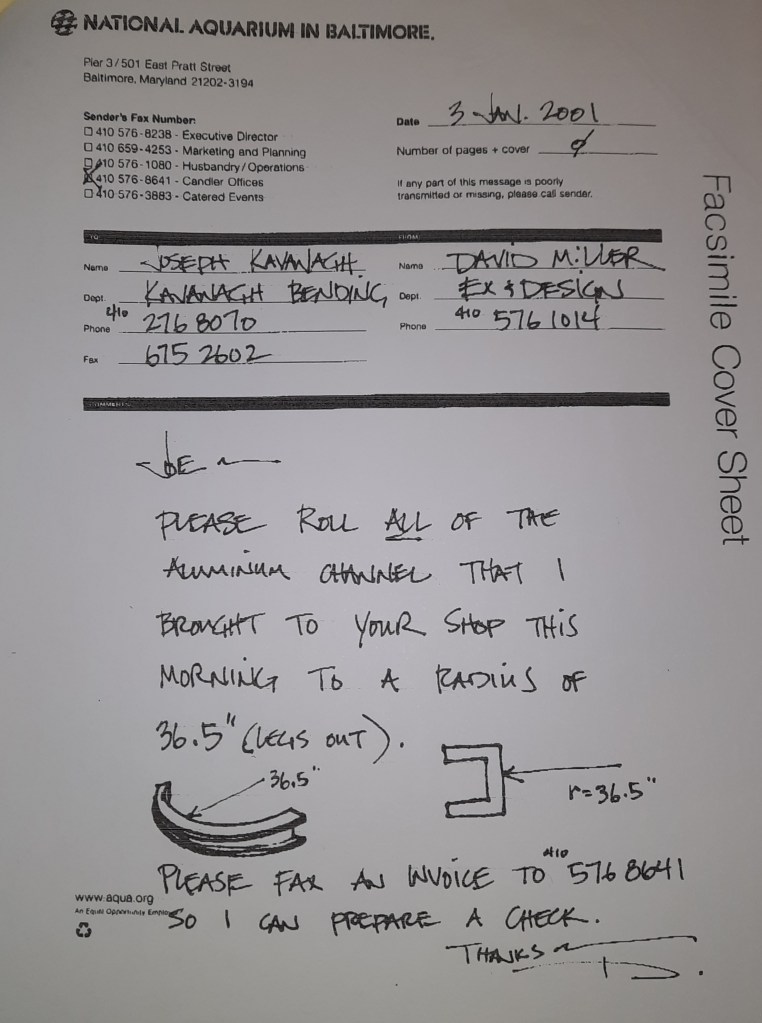 NATIONAL AQUARIUM IN BALTIMORE.
Pier 3/501 East Pratt Street
Baltimore, Maryland 21202-3194
Sender's Fax Number:
410 576-8238 - Executive Director
410 659-4253 - Marketing and Planning
410 576-1080 - Husbandry/Operations
410 576-8641 - Candler Offices
410 576-3883 - Catered Events
Date 3 JAN. 2001
Number of pages + cover
If any part of this message is poorly
transmitted or missing, please call sender.
Facsimile Cover Sheet
TO:
Name JOSEPH KAVANAGH
Dept. KAVANAGH BENDING
Phone 410 276 8070
Fax 675 2602
FROM:
Name DAVID MILLER
Dept. EX & DESIGN
Phone 410 576 1014
COMMENTS:
JOE
PLEASE ROLL ALL OF THE
ALUMINUM CHANNEL THAT I
BROUGHT TO YOUR SHOP THIS
MORNING TO A RADIUS OF
36.5" (LEGS OUT).
36.5"
r=36.5"
PLEASE FAX AN INVOICE TO 410 576 8641
SO I CAN PREPARE A CHECK.
THANKS
www.aqua.org
An Equal Opportunity Employer